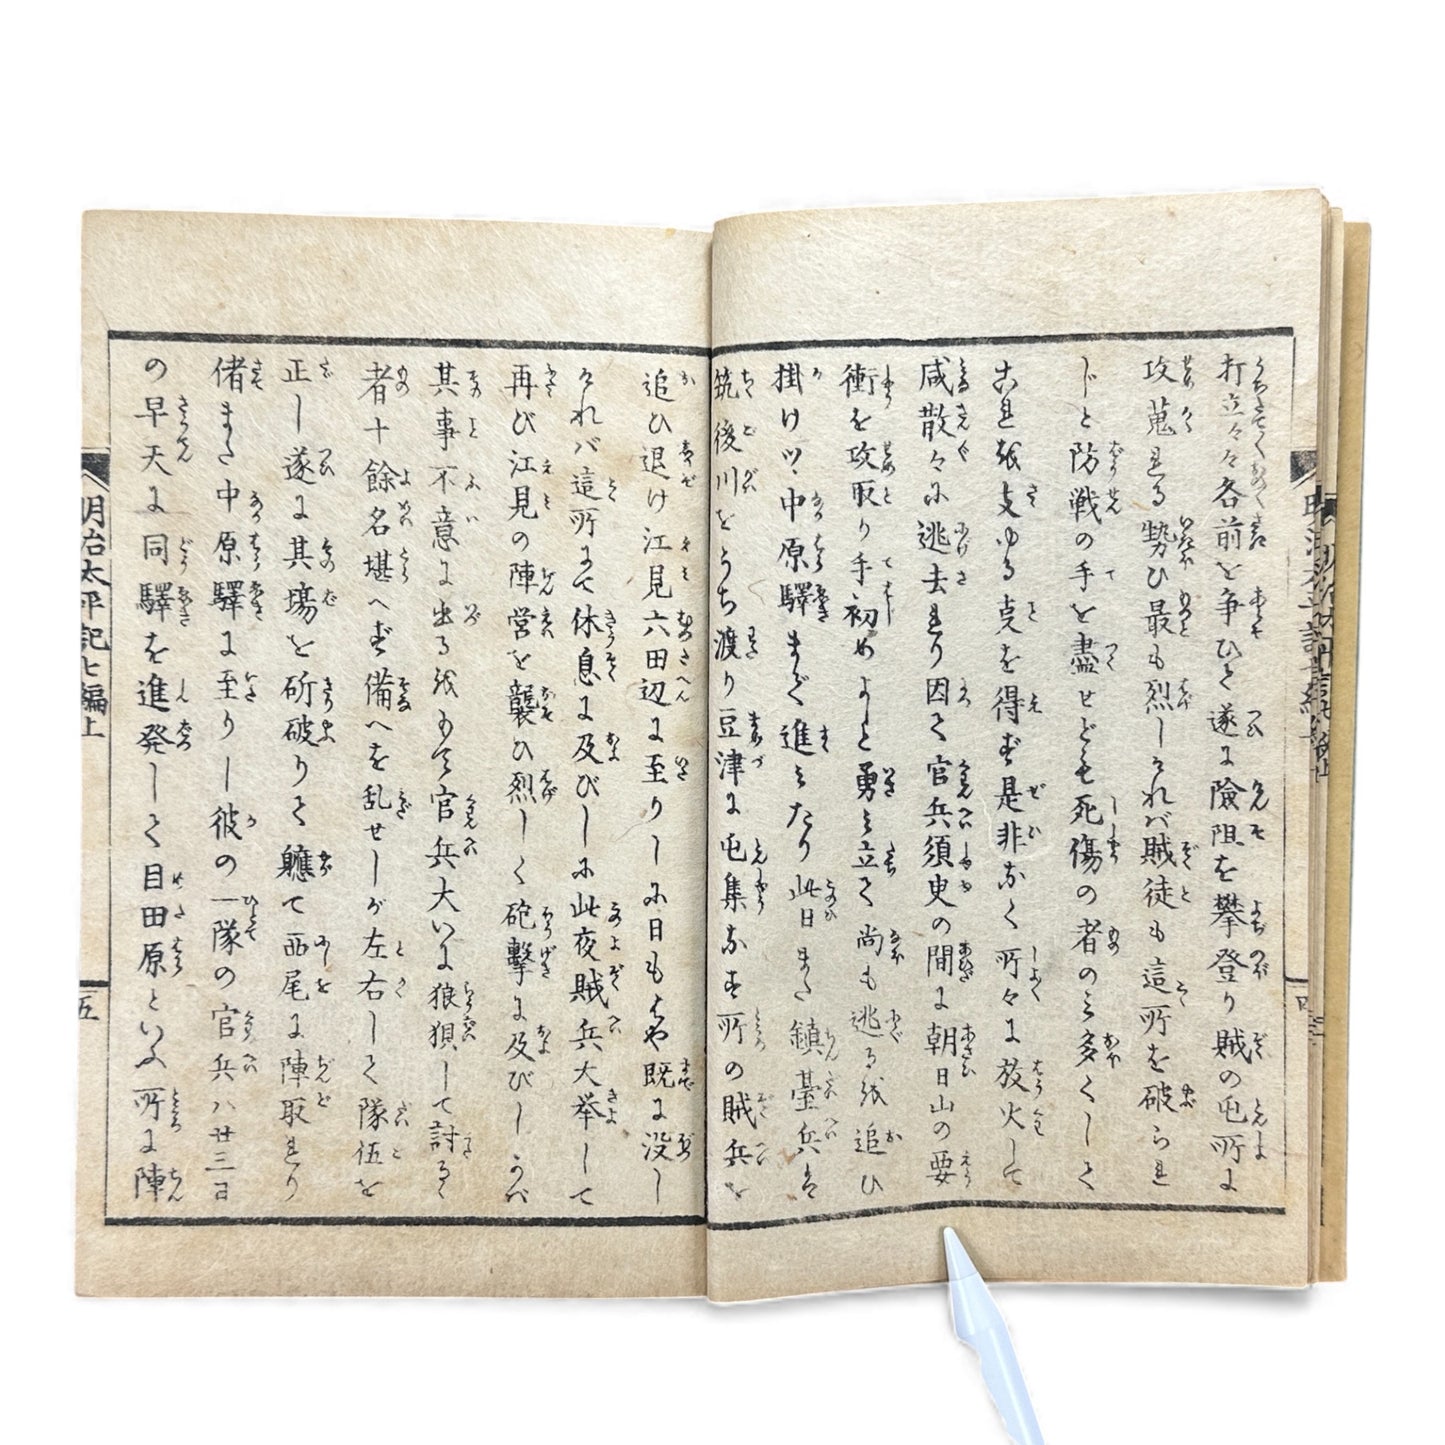 打立々々各前を争ひて遂に險阻を攀登り賊の屯所に
攻蒐る勢ひ最も烈しければ賊徒も這所を破られ
じと防戦の手を盡せども死傷の者のミ多くして
これを支ゆる克を得ず是非なく所々に放火して
咸散々に逃去れり因て官兵須史の間に朝日山の要
衝を攻取り手初めよしと勇ミ立て尚も逃るを追ひ
掛けツヽ中原驛まで進ミたり此日また鎮臺兵は
筑後川をうち渡り豆津に屯集なす所の賊兵を
追ひ退け江見六田辺に至りしに日もはや既に没し
けれバ這所にて休息に及びしに此夜賊兵大挙して
再び江見の陣営を襲ひ烈しく砲撃に及びしかバ
其事不意に出るをもて官兵大いに狼狽して討るゝ
者十餘名堪へず備へを乱せしが左右して隊伍を
正し遂に其場を斫破りて軈て西尾に陣取れり
偖また中原驛に至りし彼の一隊の官兵ハ廿三日
の早天に同驛を進発して目田原といふ所に陣
明治太平記七編上
五
四